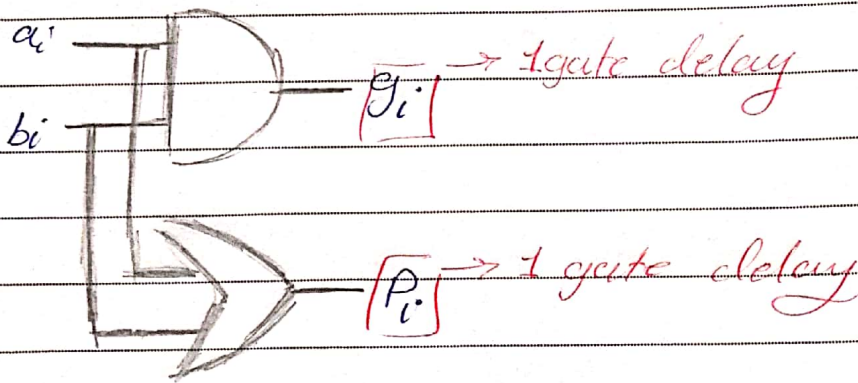 ai
gi → 1 gate delay
bi
Pi → 1 gate delay